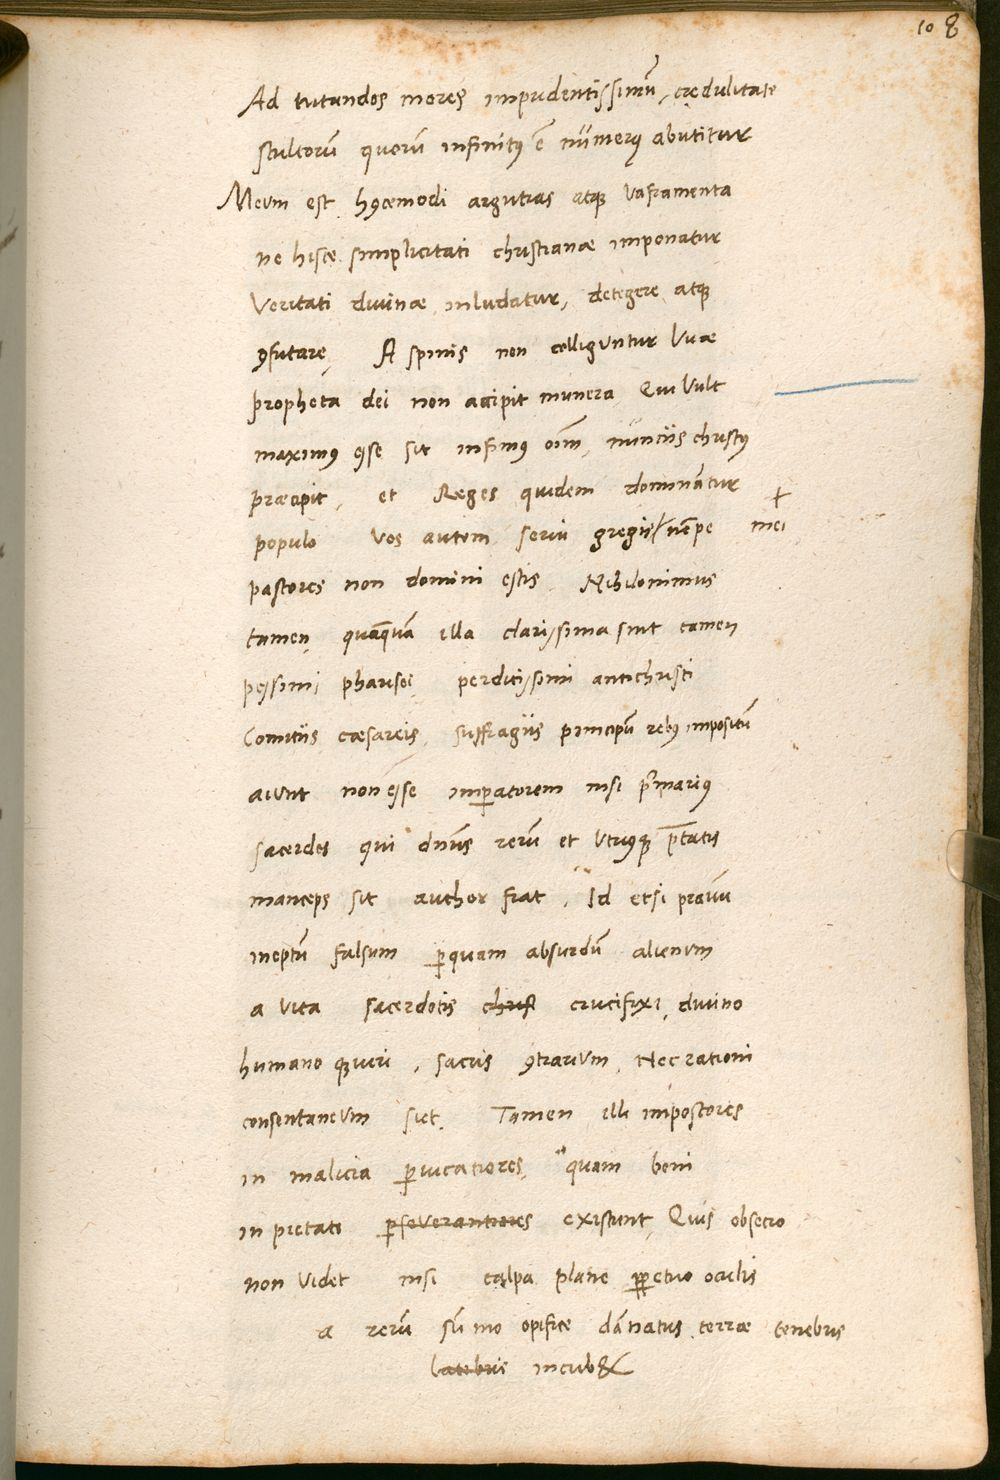 10 8
Ad tutandos mores impudentissimū, credulitate
stultorū quorū infinitꝰ ē nūmerꝰ abutitur
Meum est hꝰcemodi argutias atqꝫ vaframenta
ne hisce simplicitati christianæ imponatur
Veritati divinæ inludatur, detegere atqꝫ
ꝯfutare, A spinis non colliguntur Vuæ
propheta dei non accipit munera Qui Vult
maximꝰ esse sit infimꝰ oīm, nūnciis christꝰ
præcipit, et Reges quidem dominātur
populo Vos autem servi gregis nēpe mei
pastores non domini estis. Nihilominus
tamen, quāquā illa clarissima sint tamen
pessimi pharisei, perditissimi antichristi
Comitiis cæsareis, suffragiis principū rebꝰ impositū
aiunt non esse imꝑatorem nisi pͥmariꝰ
sacerdos qui dn̄us rerū et Utriꝰqꝫ ptātis
manceps sit author fiat, Id etsi pravū
ineptū falsum ꝑquam absurdū alienum
a vita sacerdotis christ crucifixi, divino
humanoqꝫ iuri, sacris ꝯtrarium, Nec rationi
consentaneum siet. Tamen illi impostores
in malicia ꝑvicatiores, quam boni
in pietate ꝑseverantiores existunt, Quis obsecro
non Videt nisi talpa plane ꝑpetuo oculis
a rerū sūmo opifice dānatus terræ tenebris
latebris incub&